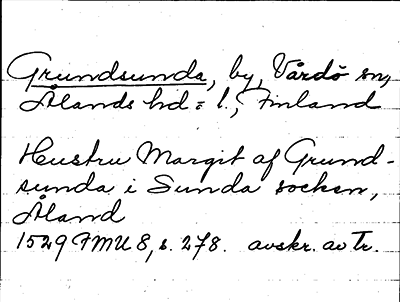 Grundsunda, by, Vårdö sn,
Ålands hd = l., Finland
Hustru Margit af Grund-
sunda i Sunda socken,
Åland
1529 FMU 8, s. 278. avskr. av Tr.